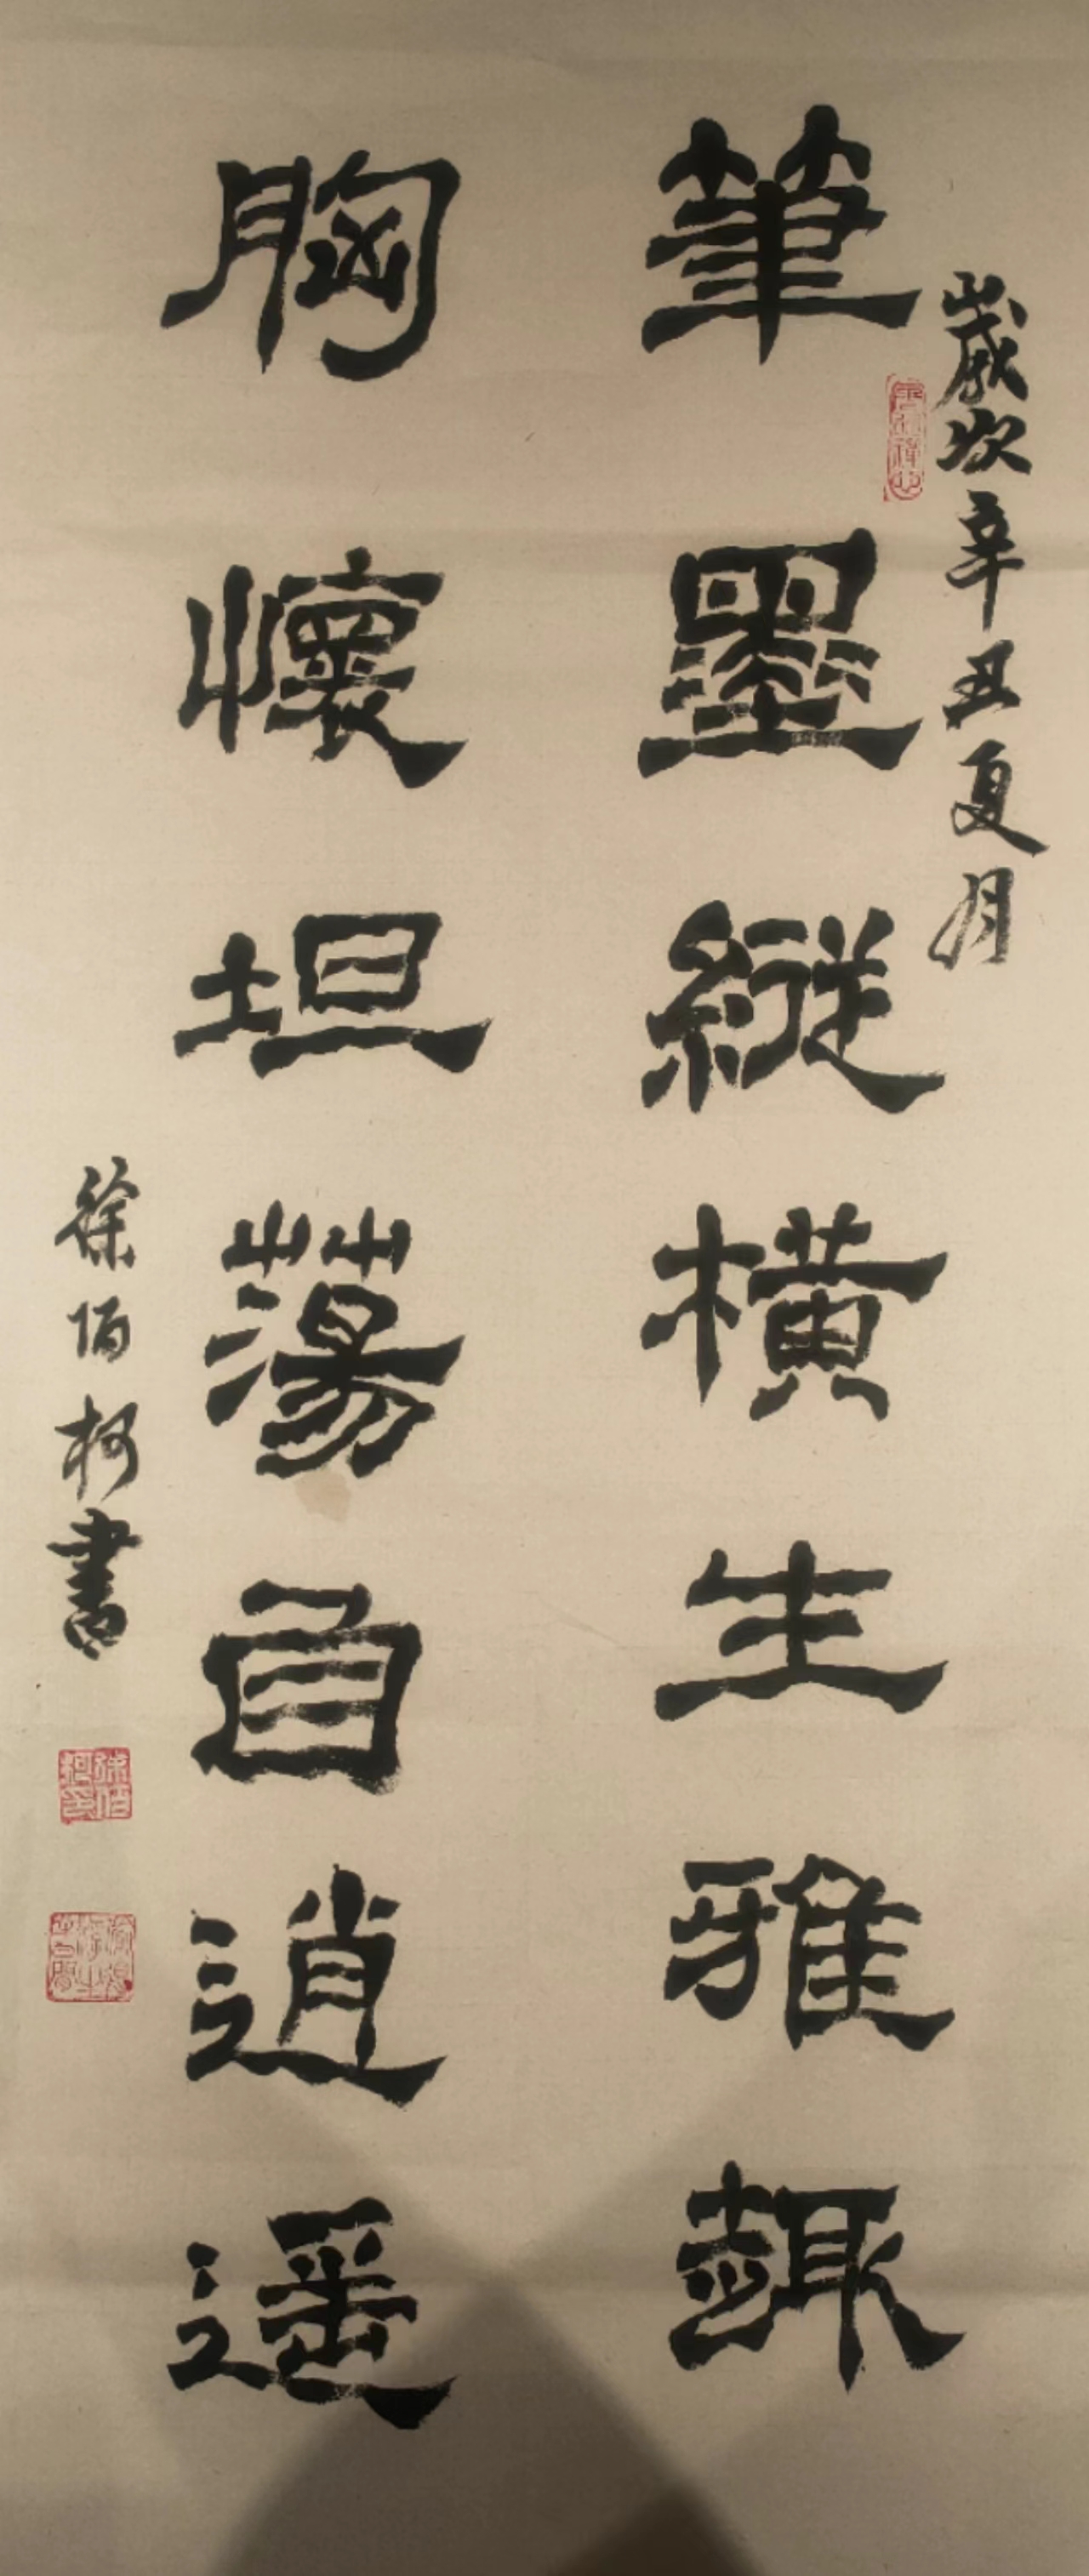 歲次辛丑夏月
筆墨縱橫生雅趣
胸懷坦蕩自逍遥
徐佰柯書